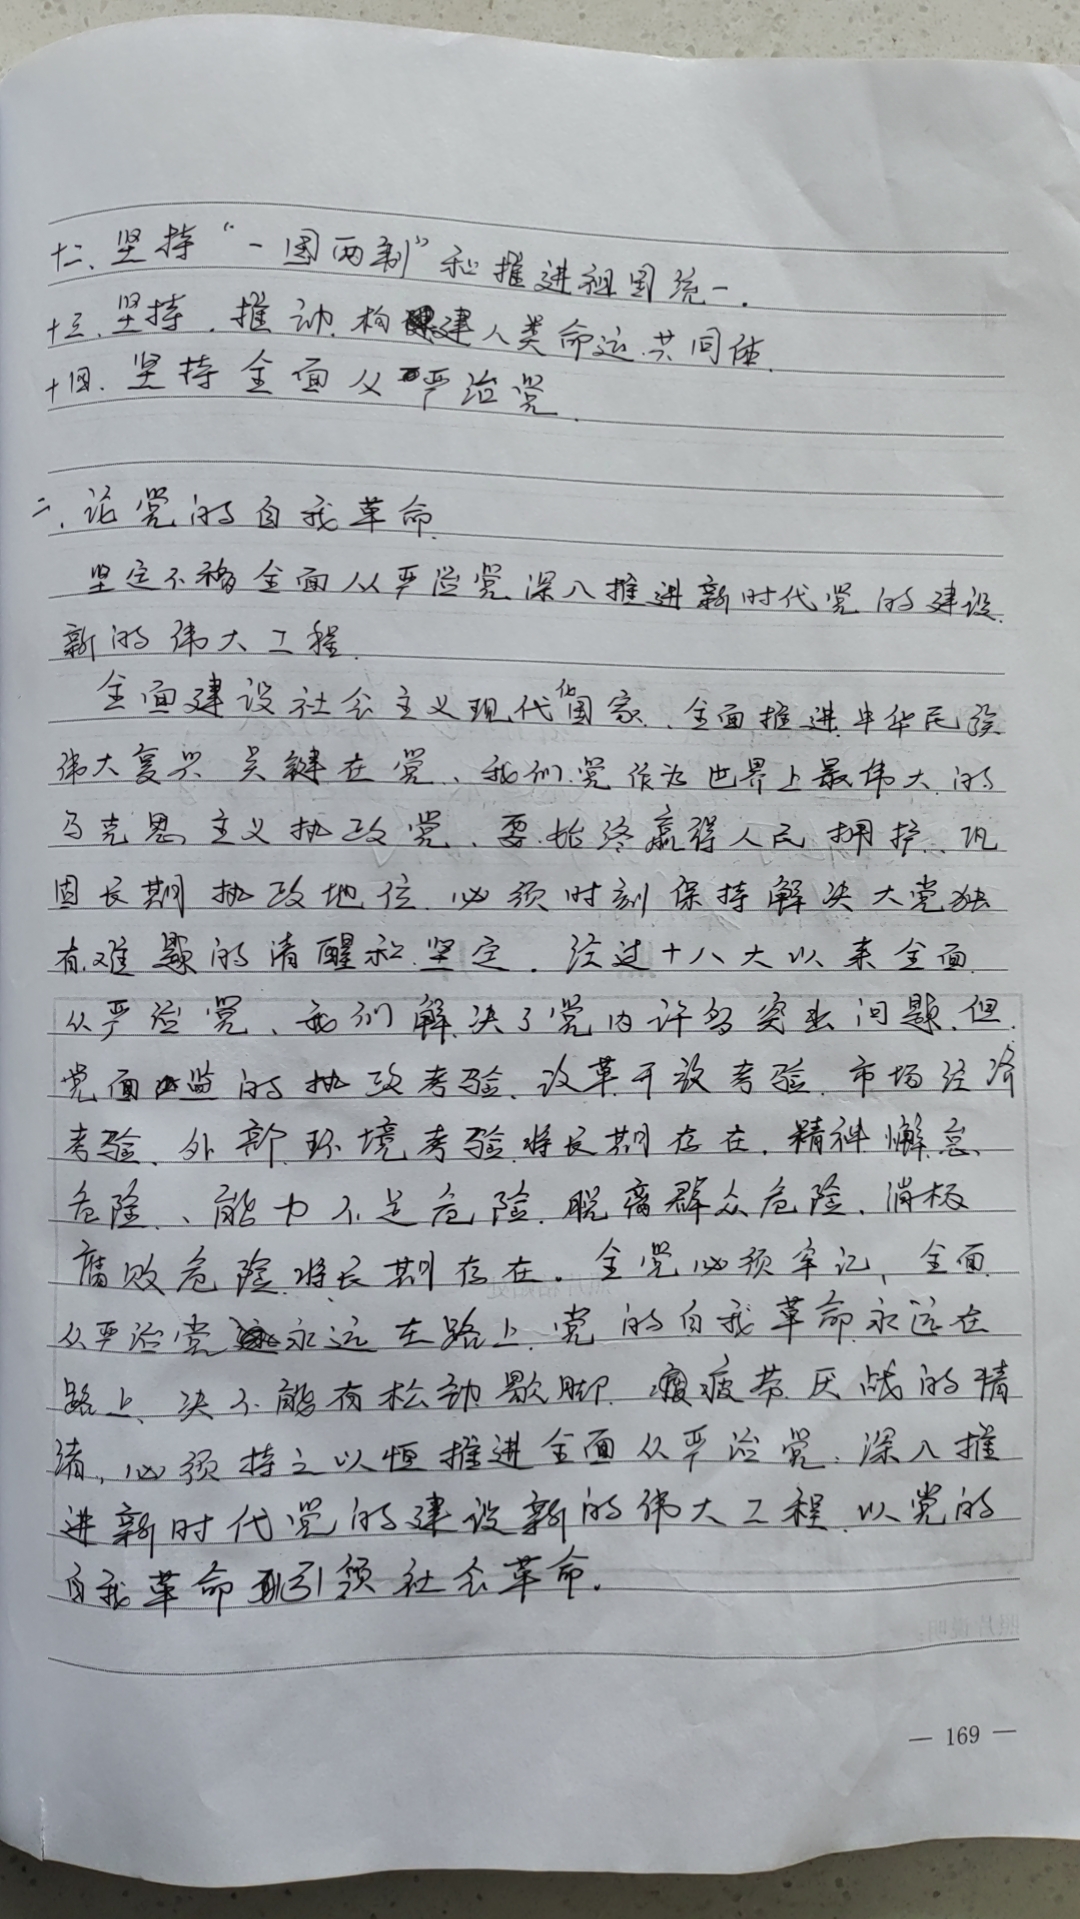 十二、坚持“一国两制”和推进祖国统一.
十三、坚持.推动构建人类命运共同体.
十四.坚持全面从严治党.
二.论党的自我革命.
坚定不移全面从严治党深入推进新时代党的建设
新的伟大工程.
全面建设社会主义现代化国家、全面推进中华民族
伟大复兴 关键在党、我们党作为世界上最伟大的
马克思主义执政党、要始终赢得人民拥护、巩
固长期执政地位.必须时刻保持解决大党独
有难题的清醒和坚定.经过十八大以来全面
从严治党、我们解决了党内许多突出问题.但
党面临的执政考验.改革开放考验.市场经济
考验、外部环境考验将长期存在.精神懈怠
危险、能力不足危险.脱离群众危险、消极
腐败危险将长期存在.全党必须牢记、全面
从严治党永远在路上.党的自我革命永远在
路上、决不能有松劲歇脚.疲劳厌战的情
绪、必须持之以恒推进全面从严治党.深入推
进新时代党的建设新的伟大工程.以党的
自我革命引领社会革命.
照片说明:
— 169 —